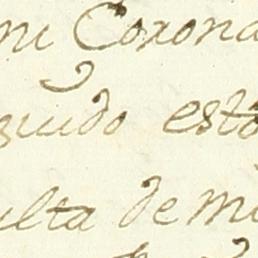 mi Corona
guido esto
ulta de mi